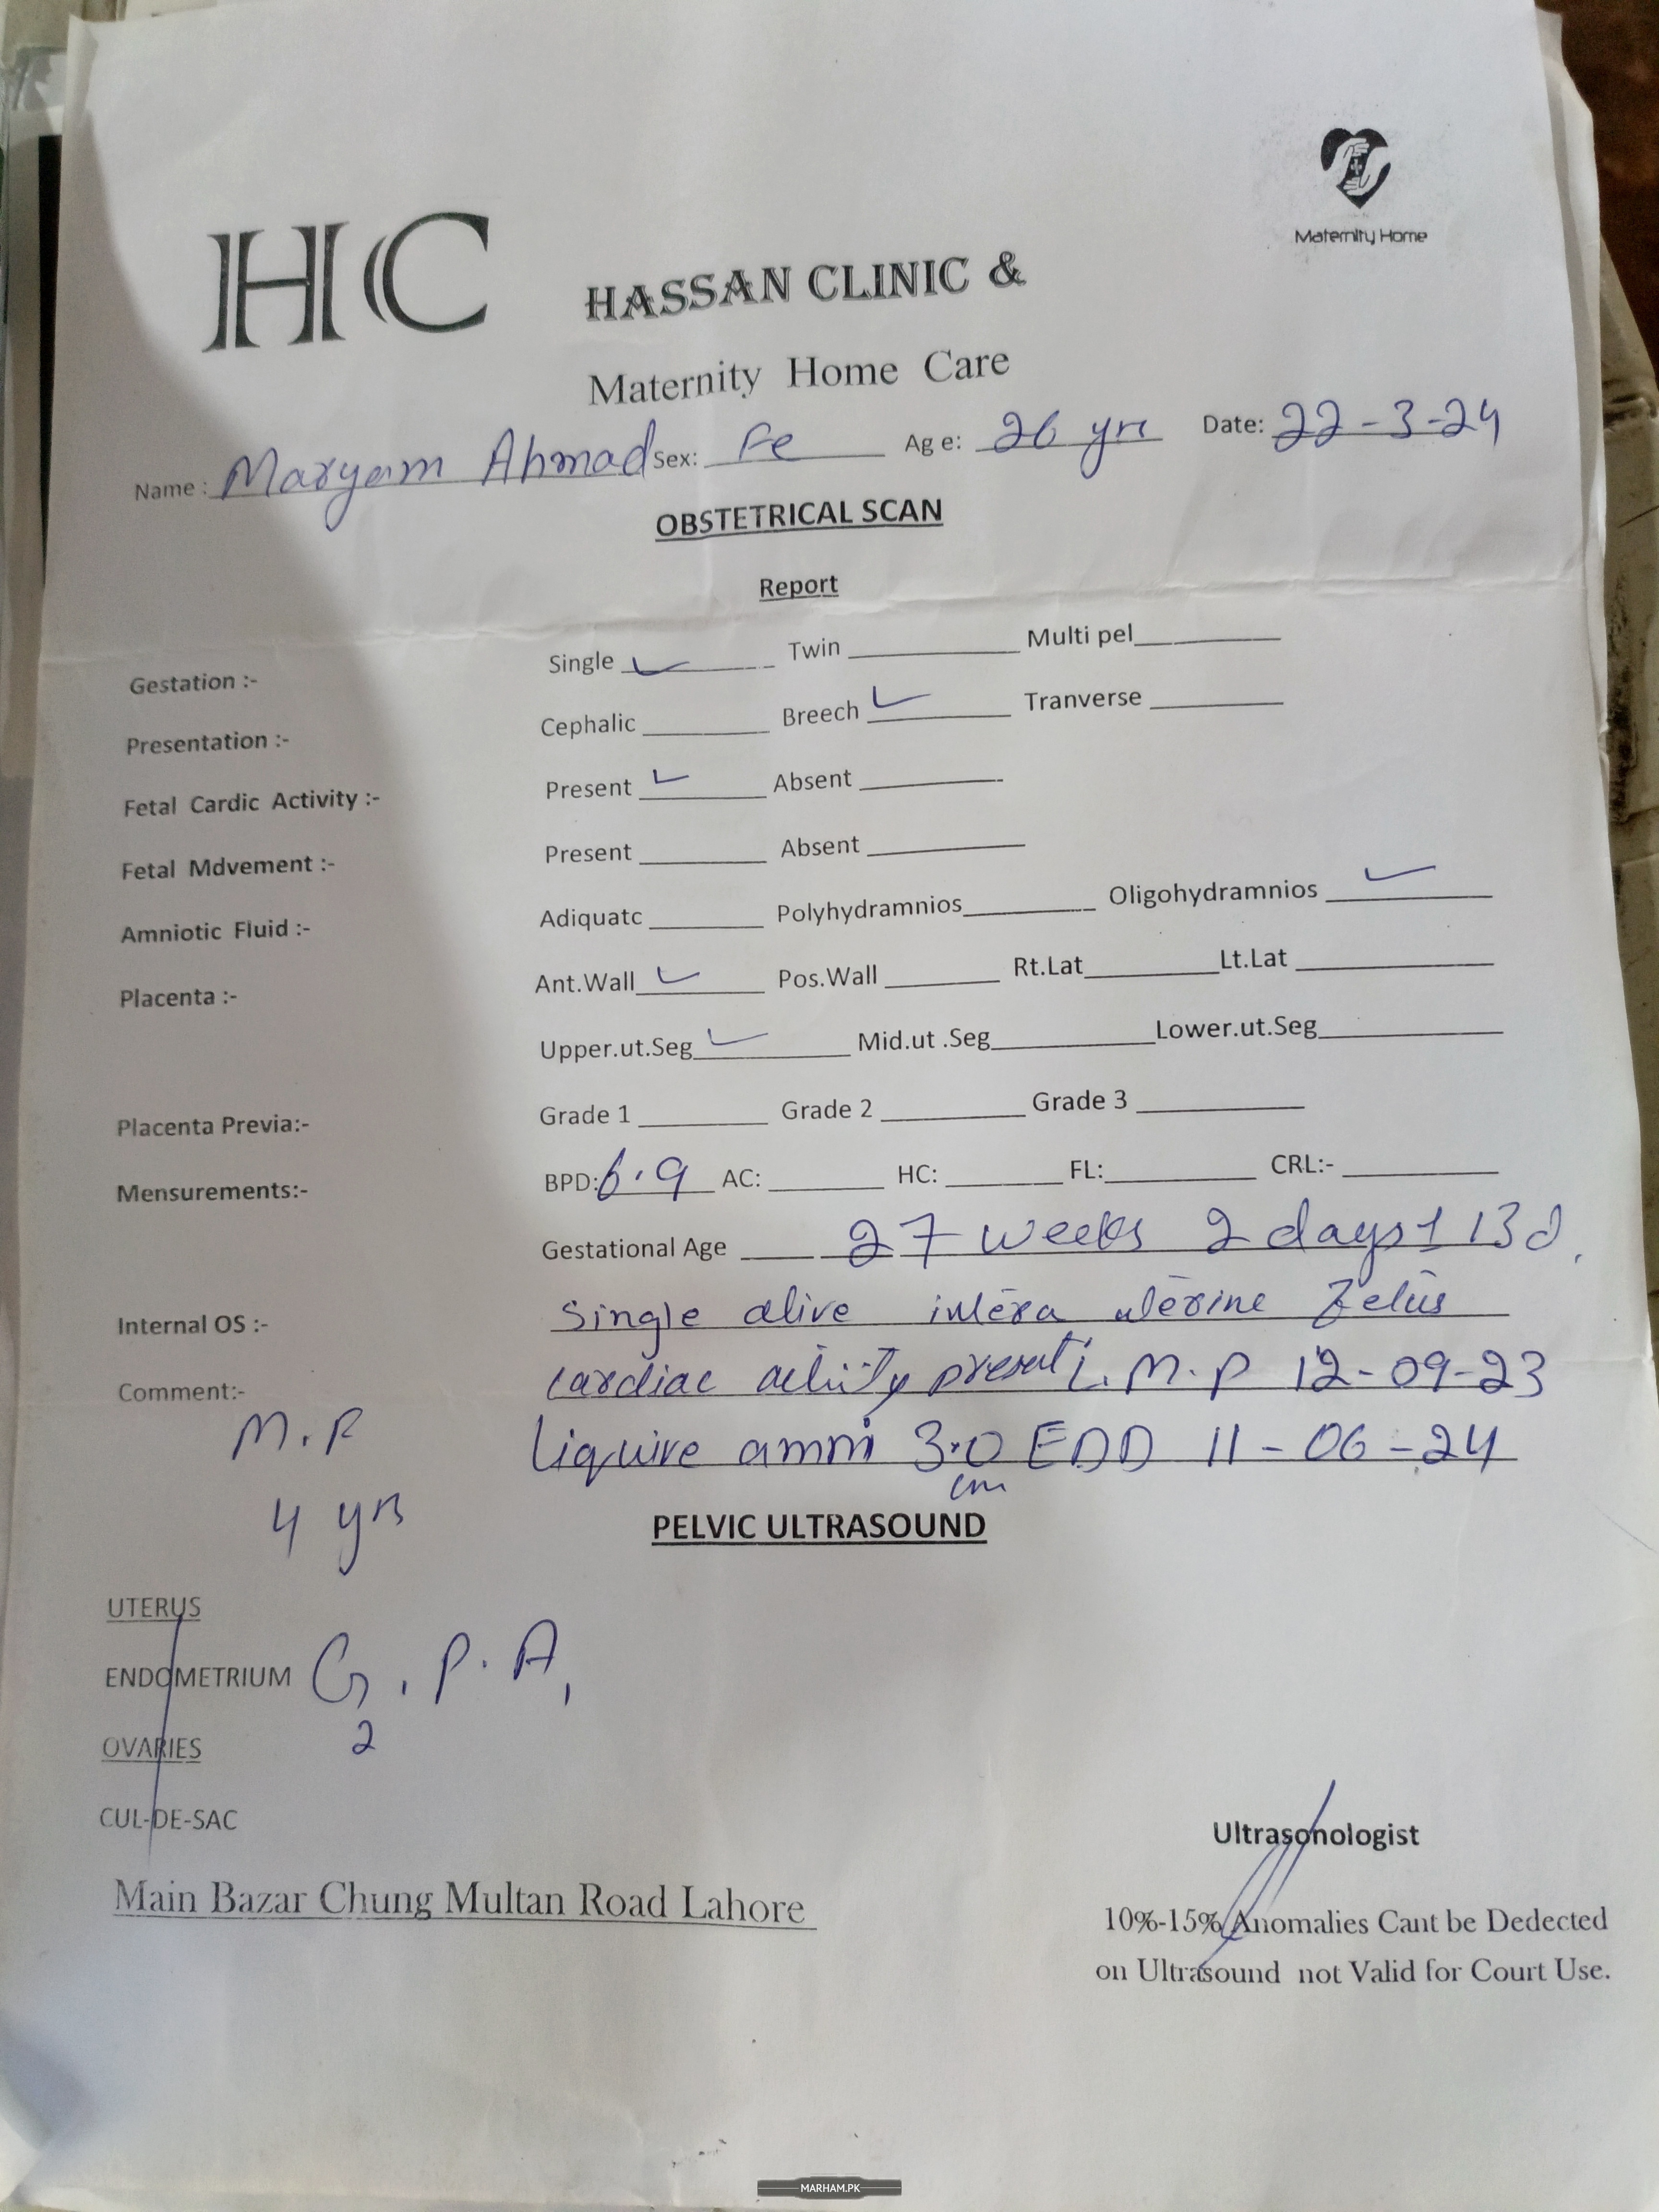 Maternity Home
HC HASSAN CLINIC &
Maternity Home Care
Name : Maryam Ahmad Sex: Fe Ag e: 26 yrs Date: 22-3-24
OBSTETRICAL SCAN
Report
Gestation :- Single ✓ Twin Multi pel
Presentation :- Cephalic Breech ✓ Tranverse
Fetal Cardic Activity :- Present ✓ Absent
Fetal Mdvement :- Present Absent
Amniotic Fluid :- Adiquatc Polyhydramnios Oligohydramnios ✓
Placenta :- Ant.Wall ✓ Pos.Wall Rt.Lat Lt.Lat
Upper.ut.Seg ✓ Mid.ut .Seg Lower.ut.Seg
Placenta Previa:- Grade 1 Grade 2 Grade 3
Mensurements:- BPD: 6.9 AC: HC: FL: CRL:-
Gestational Age 27 weeks 2 days
Internal OS :- Single alive uterine
Comment:- cardiac present L.M.P 12-09-23
M.F 3.0 cm EDD 11-06-24
4 yrs
PELVIC ULTRASOUND
UTERUS
ENDOMETRIUM G2. P. A,
OVARIES
CUL-DE-SAC
Ultrasonologist
Main Bazar Chung Multan Road Lahore
10%-15% Anomalies Cant be Dedected
on Ultrasound not Valid for Court Use.
MARHAM.PK